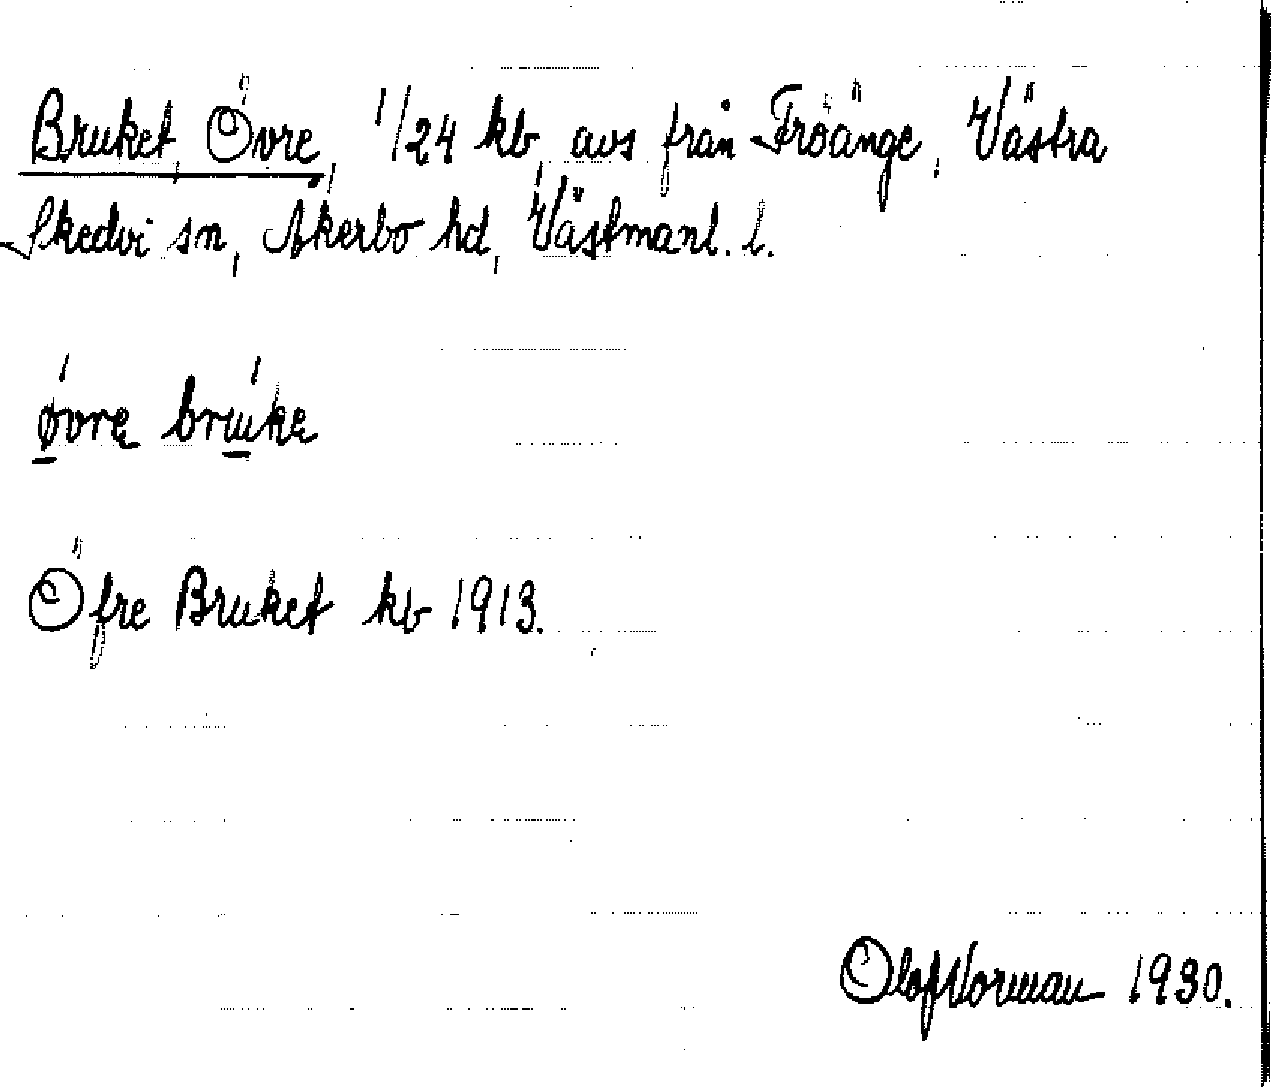 Bruket, Övre, 1/24 kb, avs från Fröänge, Västra
Skedvi sn, Åkerbo hd, Västmanl. l.
øvrę brukę
Öfre Bruket kb 1913.
Olof Norman 1930.